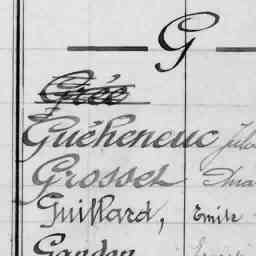 G
Grée
Guéheneuc
Grosset
Guillard, Emile
Gandon